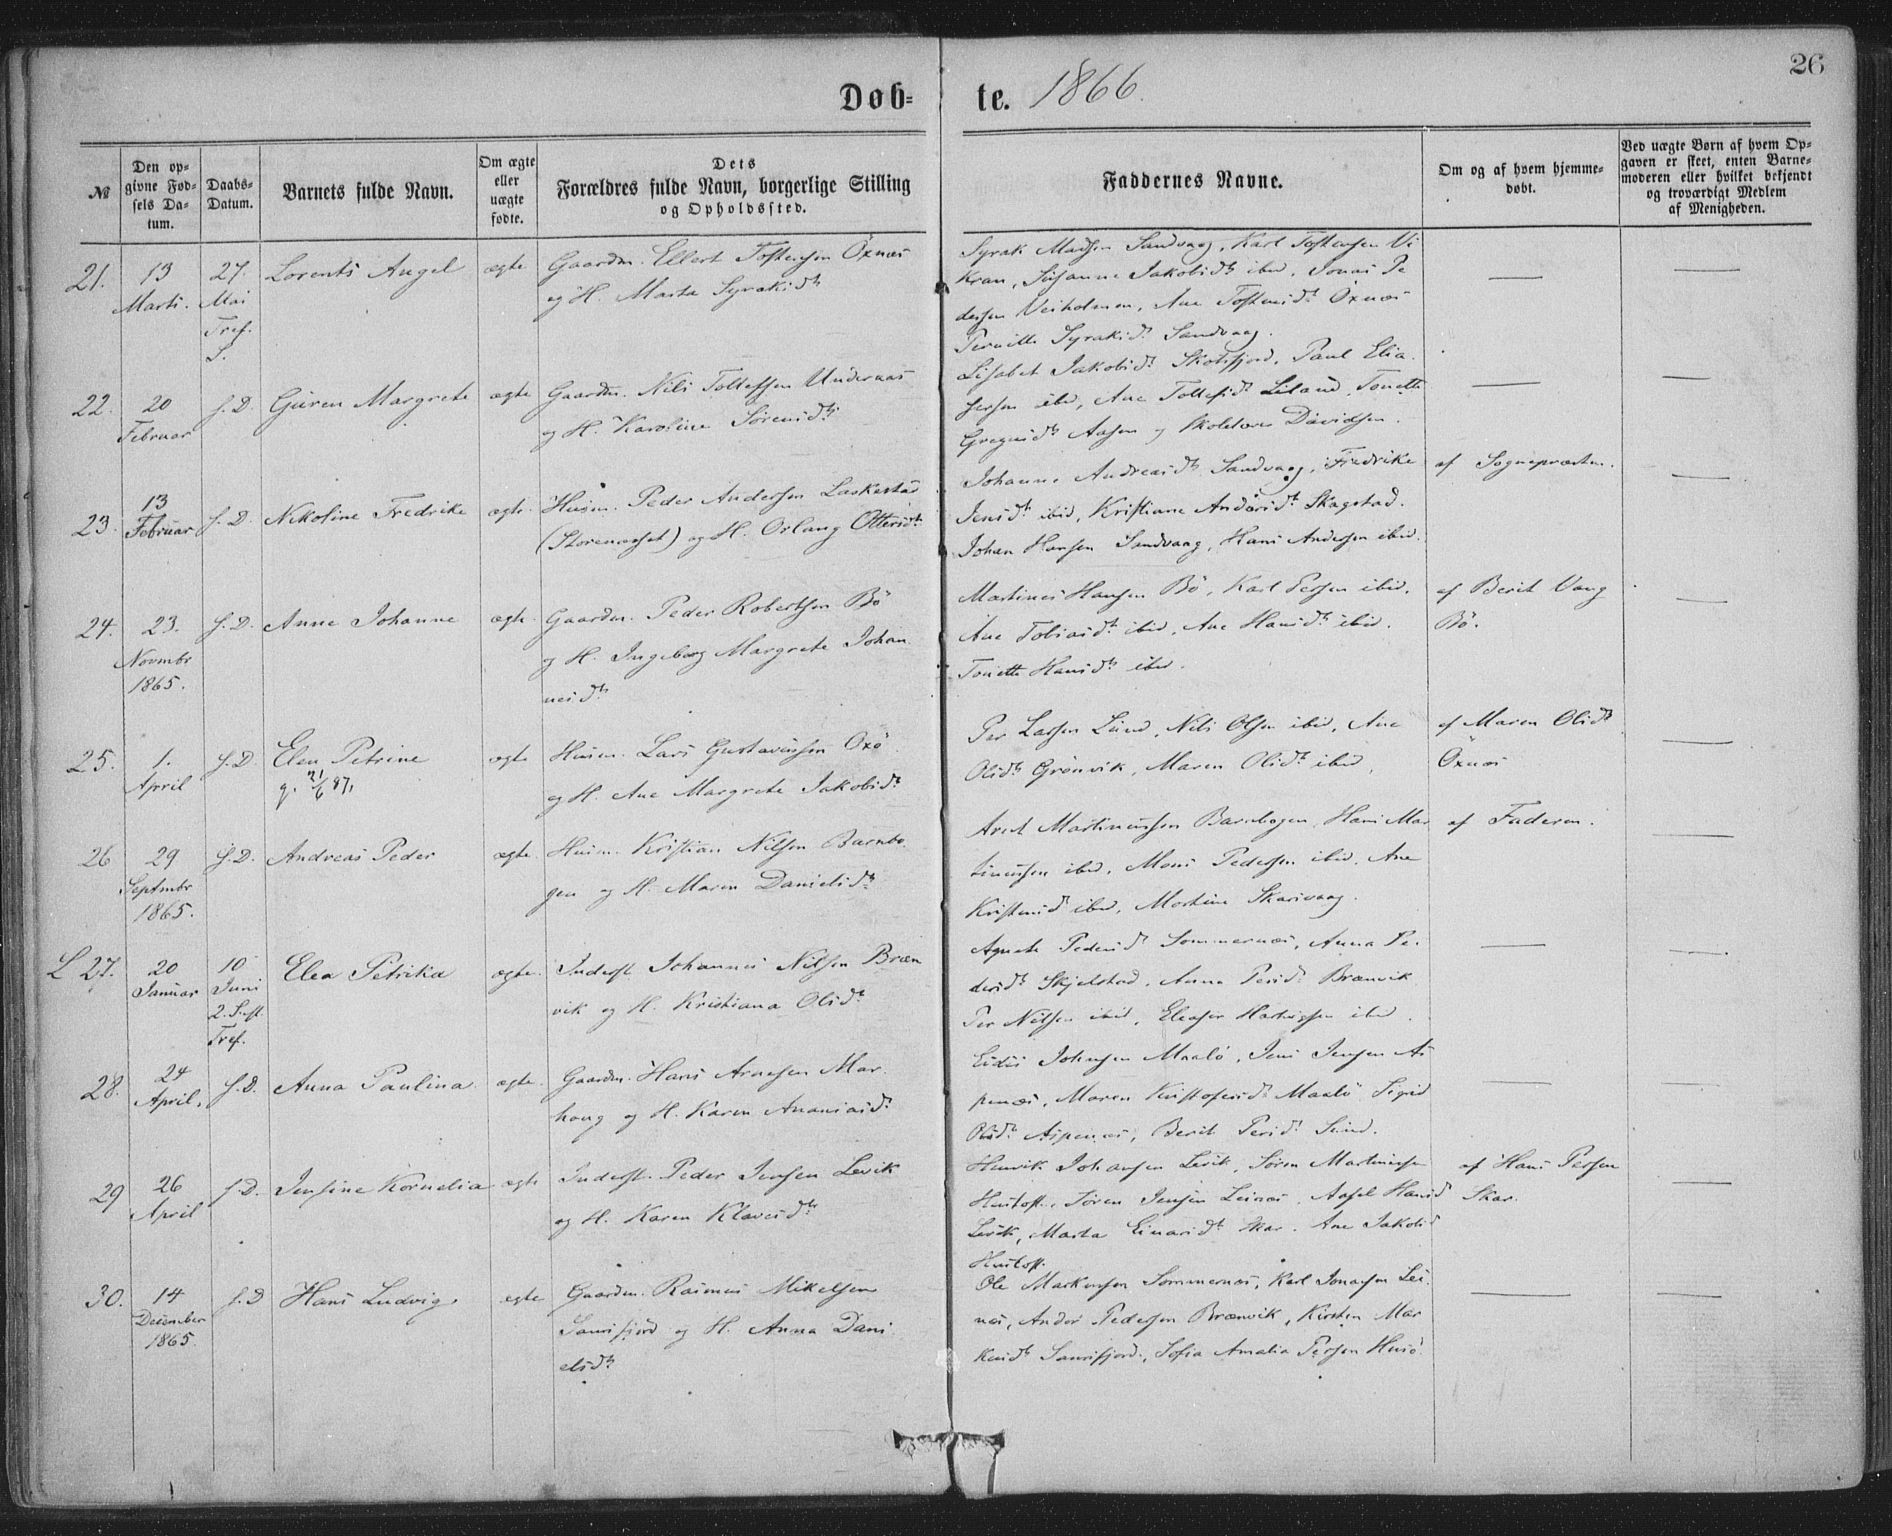 26
Døb- te. 1866.
№
Den opgivne Fødsels Datum.
Daabs-Datum.
Barnets fulde Navn.
Om ægte eller uægte fødte.
Dets Forældres fulde Navn, borgerlige Stilling og Opholdssted.
Faddernes Navne.
Om og af hvem hjemmedøbt.
Ved uægte Børn af hvem Opgaven er skeet, enten Barnemoderen eller hvilket bekjendt og troværdigt Medlem af Menigheden.
21. 13 Marts. 27. Mai Tref. S. Lorents Angel ægte
Gaardm. Ellert Tostensen Öxnæs
og H. Marta Syraksdtr
Syrak Madsen Sandvaag, Karl Tostensen Vi
kran, Susanne Jakobsdtr ibid, Jonas Pe
dersen Veiholmen, Ane Tostensdtr Öxnæs
Pernille Syraksdtr Sandvaag.
22. 20 Februar s. D. Guren Margrete ægte
Gaardm. Nils Tollefsen Undernæs
og H. Karoline Sørensdtr
Lisabet Jakobsdtr Skotsfjord, Paul Elia
sersen ibid, Ane Tollefsdtr Liland, Tonette
Gregusdtr Aasen og Skolelærer Davidsen.
23. 13 Februar s. D. Nikoline Fredrike ægte
Husm. Peder Andersen Laskestad
(Storenæsset) og H. Orlaug Ottersdtr
Johanne Andreasdtr Sandvaag, Fredrike
Jensdtr ibid, Kristiane Andorsdtr Skagstad.
Johan Hansen Sandvaag, Hans Andersen ibid.
af Sognepræsten.
24. 23. Novmbr 1865. s. D. Anne Johanne ægte
Gaardm. Peder Robertsen Bö
og H. Ingeborg Margrete Johan
nesdtr
Martines Hansen Bö, Karl Persen ibid.
Ane Tobiasdtr ibid, Ane Hansdtr ibid.
Tonette Hansdtr ibid.
af Berit Vang
Bö.
25. 1. April s. D. Elen Petrine
g. 21/6 87,
ægte
Husm. Lars Gustavusen Oxö
og H. Ane Margrete Jakobsdtr
Per Larsen Lund, Nils Olsen ibid, Ane
Olsdtr Grønvik, Maren Olsdtr ibid,
af Maren Olsdtr
Öxnæs
26 29 Septmbr 1865. s. D. Andreas Peder ægte
Husm. Kristian Nilsen Barnbo
gen og H. Maren Danielsdtr
Arnt Martinussen Barnbogen, Hans Mar
tinussen ibid, Mons Pedersen ibid, Ane
Kristensd ibid, Martine Skarivaag.
af Faderen.
L 27. 20 Januar 10 Juni 2. S. ef. Tref. Elea Petrika ægte
Inderst Johannes Nilsen Bræn
vik og H. Kristiana Olsdtr
Agnete Pedersdtr Sommernæs, Anna Pe.
dersdtr Skjelstad, Anna Persdtr Brænvik
Per Nilsen ibid, Eleaser Hartvigsen ibid.
28. 24 April. s. D. Anna Paulina ægte
Gaardm. Hans Arnesen Mar
haug og H. Karen Ananiasdtr
Eidis Johnsen Maalö, Jens Jensen As
penæs, Maren Kristofersdtr Maalö, Sigrid
Olsdtr Aspenæs, Berit Persdtr Sund.
29 26 April s. D. Jensine Kornelia ægte
Inderst Peder Jensen Levik
og H. Karen Klausdtr
Henrik Johansen Levik, Søren Martinusen
Hustoft, Søren Jensen Leinæs, Aasel Hansd
Levik, Marta Einarsdtr Skar. Ane Jakobsd
Hustoft.
af Hans Persen
Skar.
30. 14 December 1865. s. D Hans Ludvig ægte
Gaardm. Rasmus Mikelsen
Saursfjord og H. Anna Dani
elsdtr
Ole Markussen Sommernæs, Karl Jonassen Lei
næs, Andor Pedersen Brænvik, Kirsten Mar
kusdtr Saursfjord, Sofia Amalia Persen Husö.